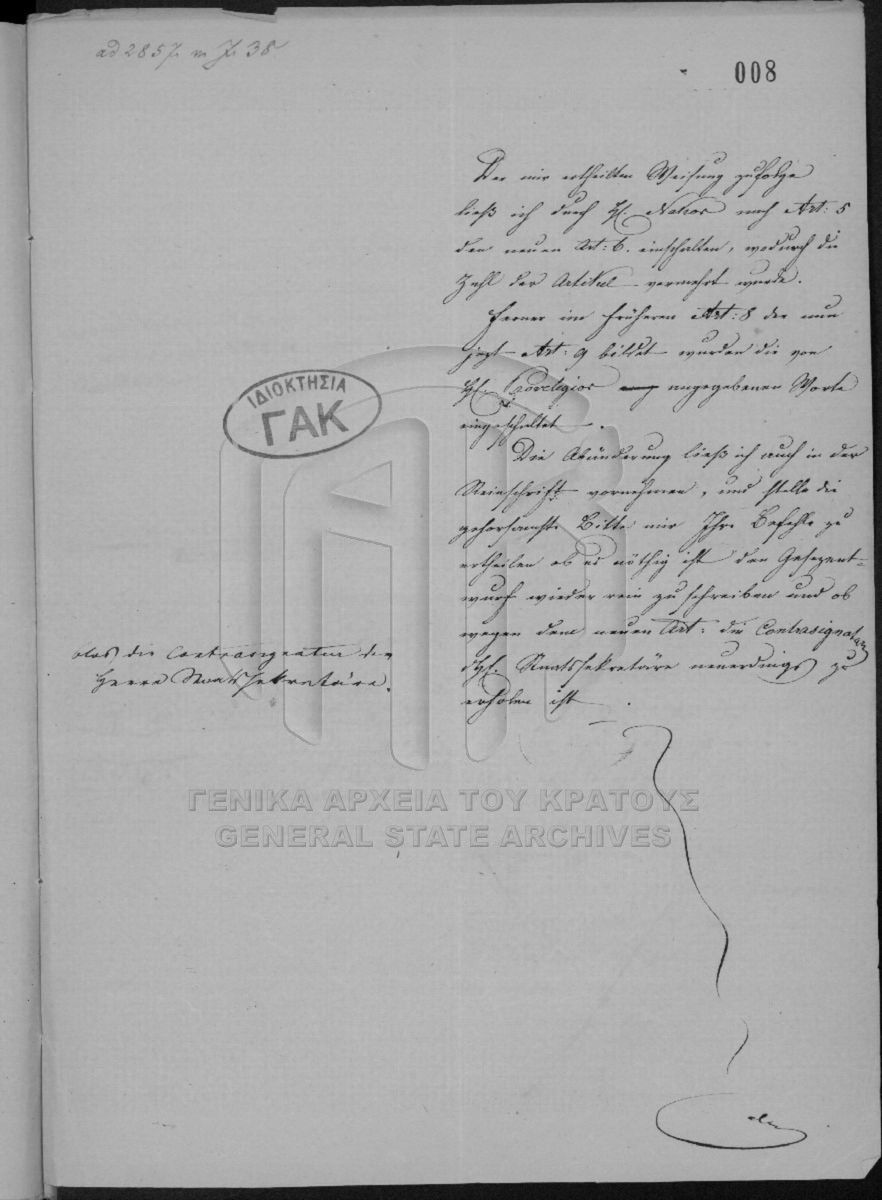 ad 2857. 38
008
Der mir ertheilten Weisung zufolge
ließ ich durch H. nach Art: 5
den neuen Art: 6. einschalten, wodurch die
Zahl der Artikel vermehrt wurde.
Ferner im früheren Art: 8 der nun
jezt Art: 9 bildet wurden die von
H. angegebenen Worte
eingeschaltet.
Die Abänderung ließ ich auch in der
Reinschrift vornehmen, und stelle die
gehorsamste Bitte mir Ihre Befehle zu
ertheilen ob es nöthig ist den Gesezent-
wurf wieder rein zu schreiben und ob
wegen dem neuen Art: die Contrasignatur
d. H. Staatssekretäre neuerdings zu
erholen ist.
die Contrasignatur der
Herrn Staatssekretäre.
ΙΔΙΟΚΤΗΣΙΑ
ΓΑΚ
ΓΕΝΙΚΑ ΑΡΧΕΙΑ ΤΟΥ ΚΡΑΤΟΥΣ
GENERAL STATE ARCHIVES